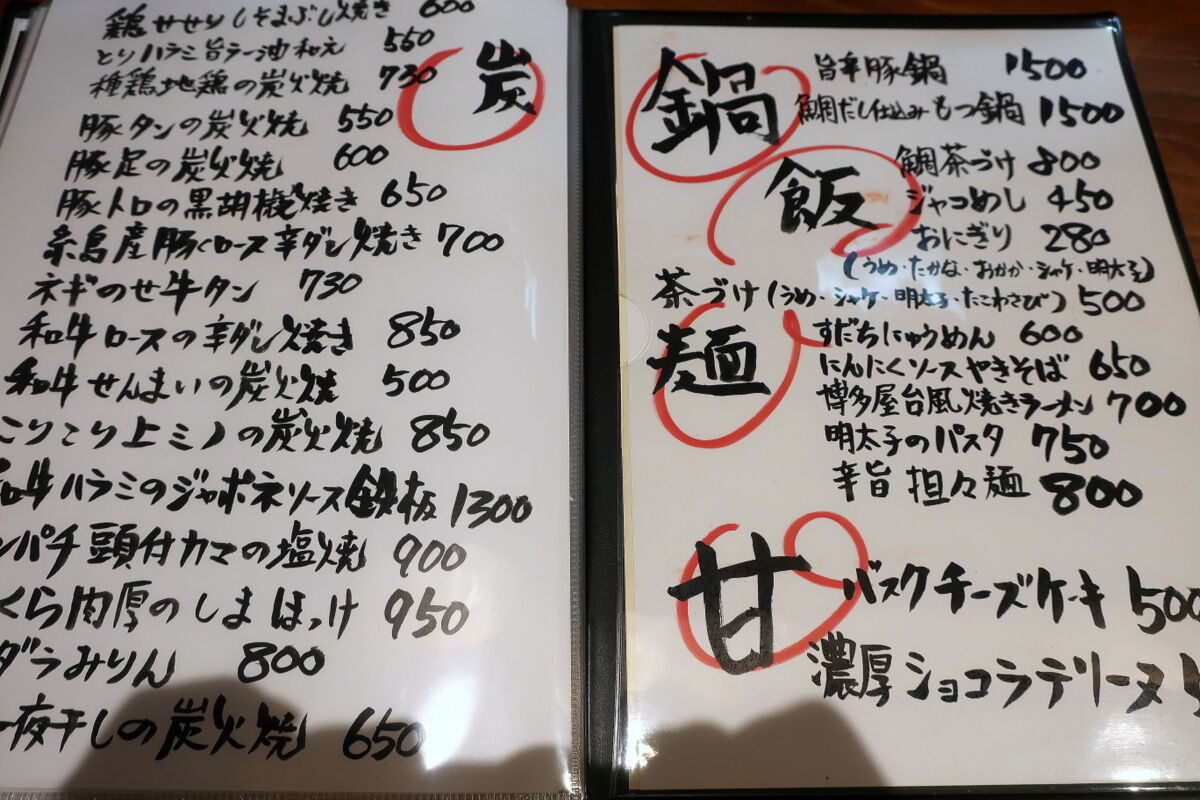 鶏せせりしそまぶし焼き 600
とりハラミ旨ラー油和え 550
種鶏地鶏の炭火焼 730
炭
豚タンの炭火焼 550
豚足の炭火焼 600
豚トロの黒胡椒焼き 650
糸島産豚ロース辛ダレ焼き 700
ネギのせ牛タン 730
和牛ロースの辛ダレ焼き 850
和牛せんまいの炭火焼 500
こりこり上ミノの炭火焼 850
和牛ハラミのジャポネソース鉄板 1300
ンパチ頭付カマの塩焼 900
くら肉厚のしまほっけ 950
ダラみりん 800
一夜干しの炭火焼 650
鍋
旨辛豚鍋 1500
鯛だし仕込みもつ鍋 1500
飯
鯛茶づけ 800
ジャコめし 450
おにぎり 280
(うめ・たかな・おかか・シャケ・明太子)
茶づけ(うめ・シャケ・明太子・たこわさび) 500
麺
すだちにゅうめん 600
にんにくソースやきそば 650
博多屋台風焼きラーメン 700
明太子のパスタ 750
辛旨 担々麺 800
甘
バスクチーズケーキ 500
濃厚ショコラテリーヌ